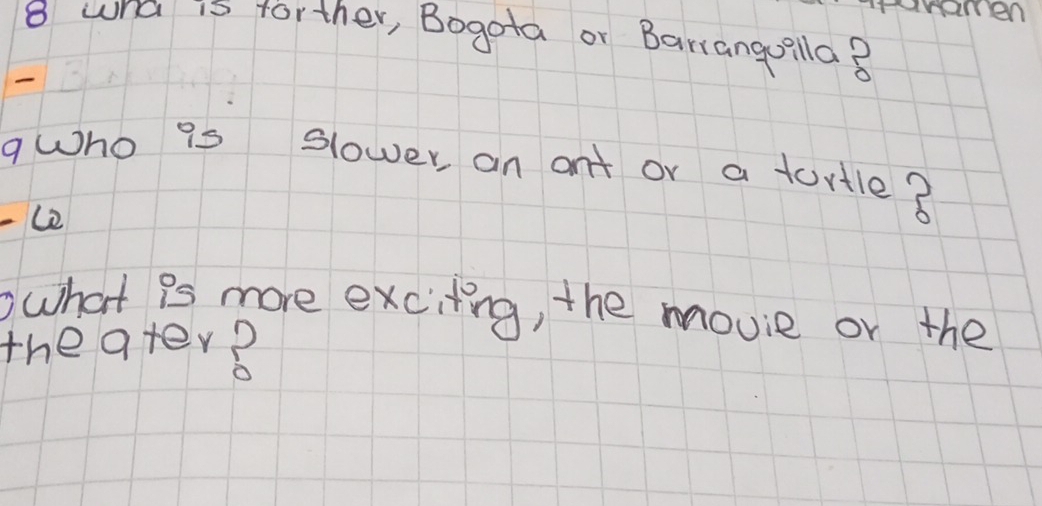 8 wha isforther, Bogota or Barranquilla?
-
9 Who is slower, an ant or a turtle?
-
What is more exciting, the movie or the
theater?